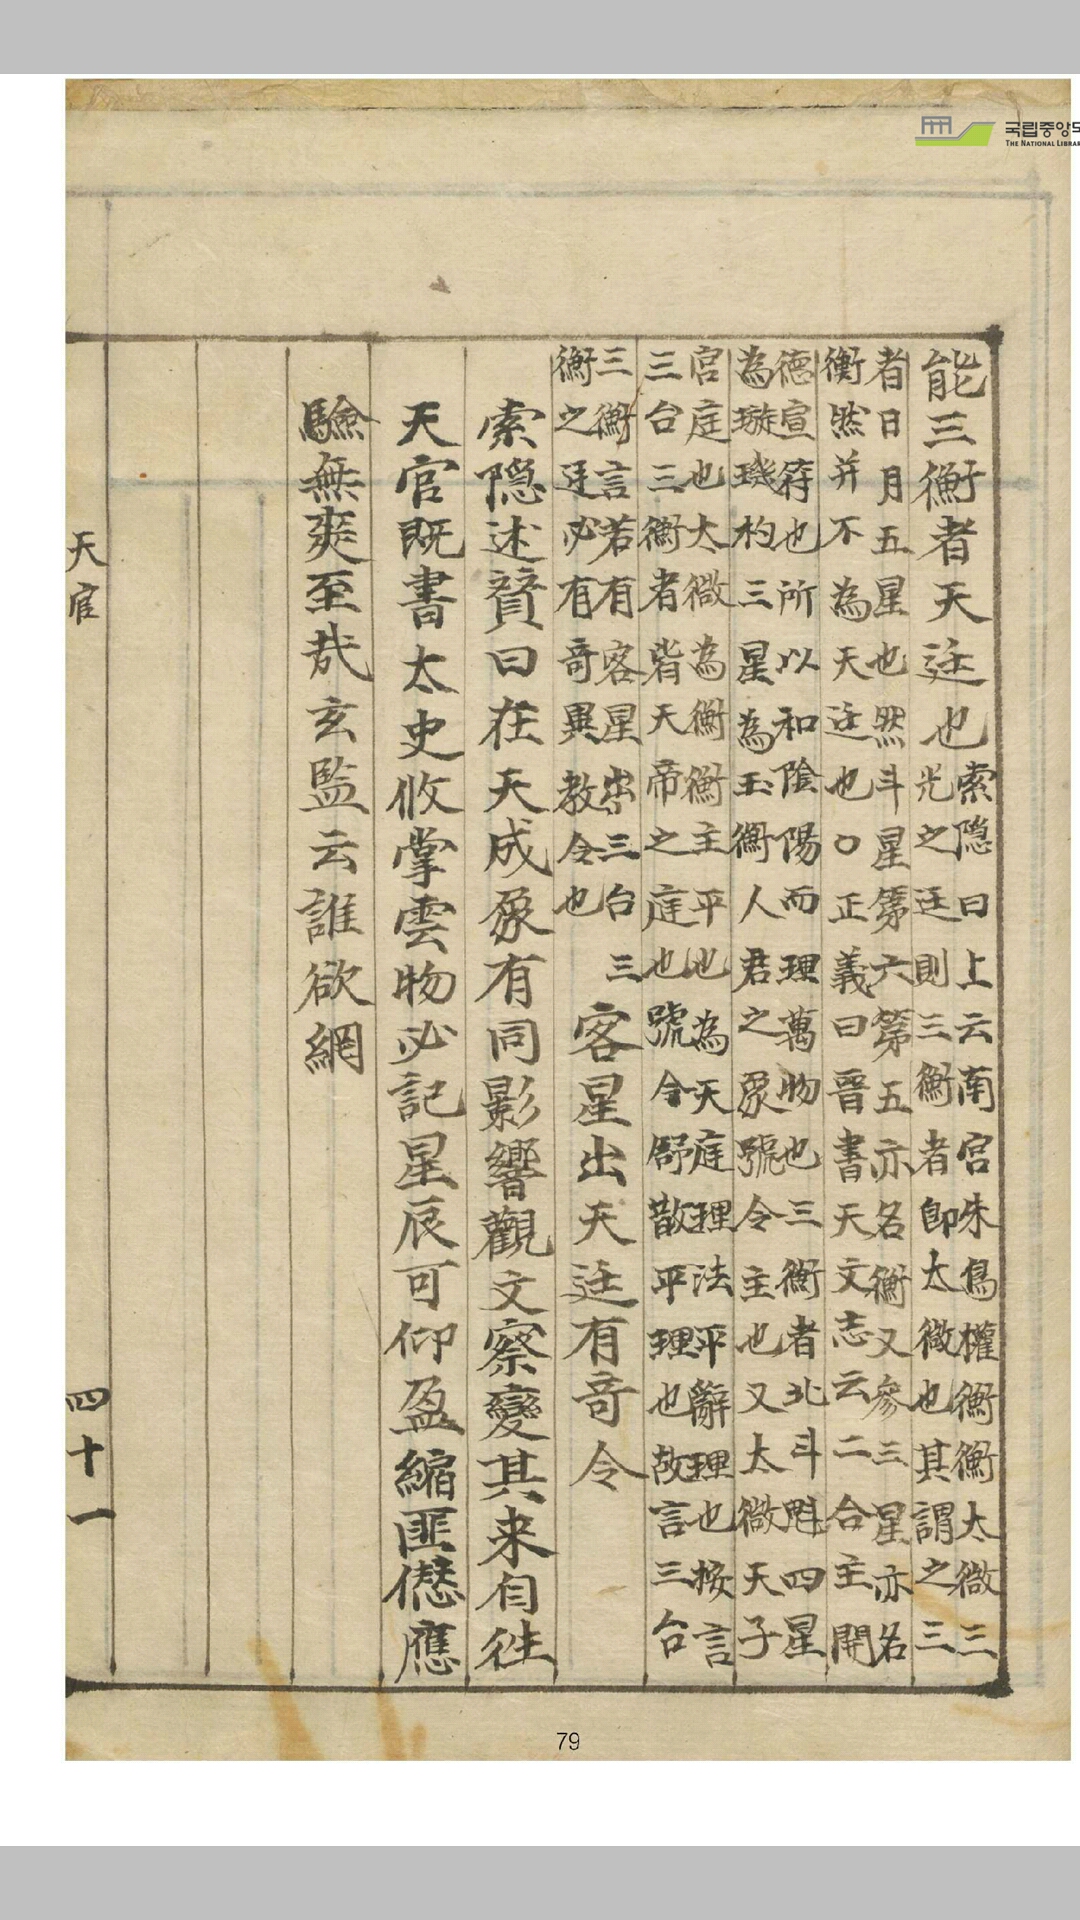 국립중앙도
THE NATIONAL LIBRAR
能三衡者天廷也
索隐曰上云南宫朱鳥權衡衡太微三
光之廷則三衡者卽太微也其謂之三
者日月五星也然斗星第六第五亦名衡又參三星亦名
衡然并不為天廷也〇正義曰晋書天文志云二台主開
德宣符也所以和陰陽而理萬物也三衡者北斗魁四星
為璇璣杓三星為玉衡人君之象號令主也又太微天子
宫庭也太微為衡衡主平也為天庭理法平辭理也按言
三台三衡者皆天帝之庭也號令舒散平理也故言三台
三衡言若有客星出三台三
衡之廷必有奇異教令也
客星出天廷有奇令
索隐述贊曰在天成象有同影響觀文察變其来自徃
天官既書太史攸掌雲物必記星辰可仰盈縮匪僁應
驗無爽至哉玄監云誰欲網
天官
四十一
79